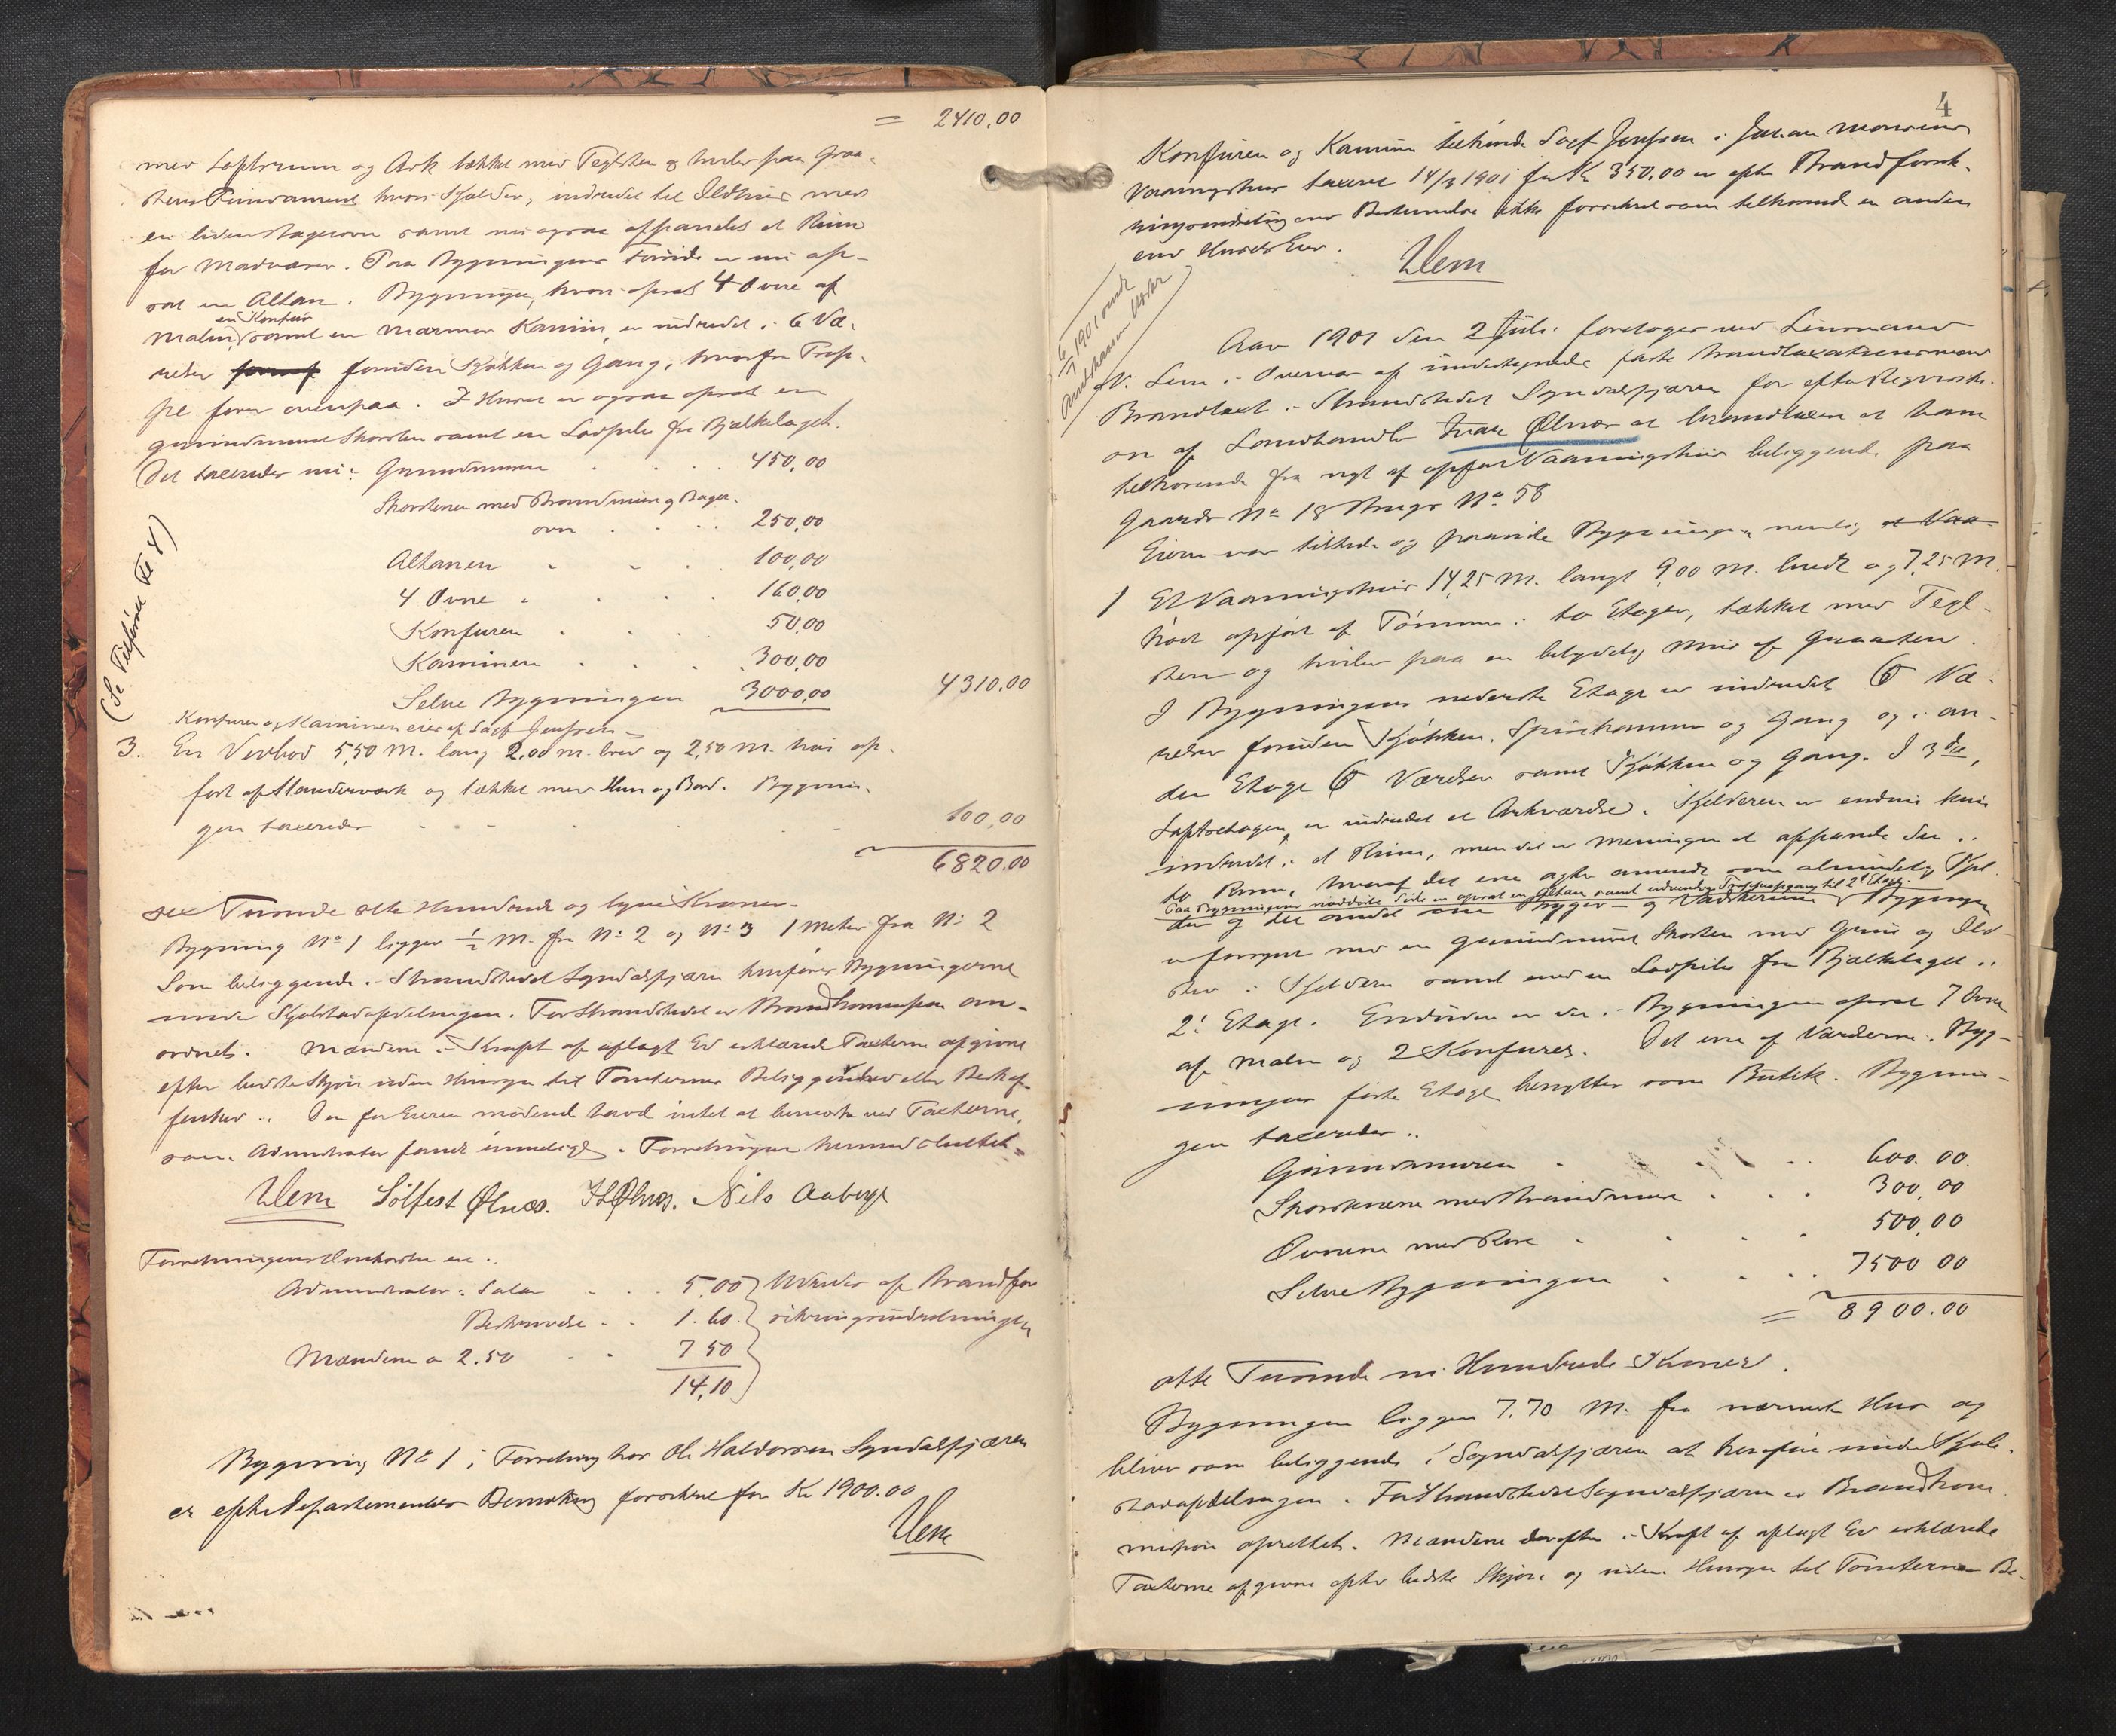 = 2410,00
med Loftsrum og Ark tækket med Teglsten og hviler paa Graa-
stens Fundament hvori Kjælder, indredet til Ildhus med
en liden Bagerovn samt nu ogsaa afpanelet et Rum
for Madvarer. Paa Bygningens Forside er nu op-
sat en Altan. Bygningen, hvori opsat 4 Ovne af
en Konfur
Malm, samt en Marmor Kamin, er indredet i 6 Væ-
relser foruden Kjøkken og Gang, hvorfra Trap-
pe fører ovenpaa. I Huset er ogsaa opsat en
gruindmuret Skorsten samt en Lodpibe fra Bjælkelaget.
Det taxeredes nu: Grundmuren 450,00
Skorstenen med Brandmur og Bager-
ovn 250,00
Altanen 100,00
4 Ovne 160,00
Konfuren 50,00
Kaminen 300,00
Selve Bygningen 3000,00 4310,00
(Se Tilførsel Fo 4)
Konfuren og Kaminen eies af Sjef Jenssen
3. En Vedbod 5,50 M. lang 2,00 M. bred og 2,50 M. høi op-
ført af Standerværk og tækket med Hun og Bord. Bygnin-
gen taxeredes 100,00
6820.00
sex Tusinde otte Hundrede og tyve Kroner.
Bygning No 1 ligger 1/2 M. fra No 2 og No 3 1 Meter fra No 2
Som beliggende i Strandstedet Sogndalsfjæren henføres Bygningerne
under Kjøbstadafdelingen. For Strandstedet er Brandkommission an-
ordnet. Mændene i Kraft af aflagt Ed erklærede Taxterne afgivne
efter bedste Skjøn uden Hensyn til Tomternes Beliggenhed eller Beskaf-
fenhed. Den for Eieren mødende havde intet at bemærke ved Taxterne,
som Administrator fandt rimelige. Forretningen hermed sluttet.
Ulem Sølfest Ølnes. Nils Aaberge
Forretningens Omkostninger ere:
Administrator i Salær 5.00 Udredes af Brandfor
Beskrivelse 1.60 sikringsindretningen
Mændene a 2.50 7 50
14,10
Bygning No 1 i Forretning hos Ole Haldorsen Sogndalsfjæren
er efter Departementets Bemærkning forsikret for Kr 1900.00
Ulem
4
Konfuren og Kaminen tilhørende Sjef Jenssen i Johan Monsens
Vaaningshus taxeret 14/3 1901 for Kr 350,00 er efter Brandforsik-
ringsindretningens Bestemmelse ikke forsikret som tilhørende en anden
end Husets Eier.
Ulem
Aar 1901 den 2 Juli foretoges ved Lensmand
N. Lem i Overvær af undertegnede faste Brandtaxationsmænd
Brandtaxt i Strandstedet Sogndalsfjæren for efter Requisiti-
on af Landhandler Ivar Ølnes at brandtaxere et ham
tilhørende fra nyt af opført Vaaningshus beliggende paa
Gaards No 18 Brugs No 58
Eieren var tilstede og paaviste Bygningen, nemlig et Vaa-
1 Et Vaaningshus 14,25 M. langt 9,00 M. bredt og 7,25 M.
høit opført af Tømmer i to Etager, tækket med Tegl-
sten og hviler paa en betydelig Mur af Graasten.
I Bygningens nederste Etage er indredet 6 Væ-
relser foruden Kjøkken, Spisekammer og Gang og i an-
den Etage 6 Værelser samt Kjøkken og Gang. I 3die,
Loftsetagen, er indredet et Arkværelse. Kjelderen er endnu kun
indredet i et Rum, men det er Meningen at afpanele den i
to Rum, hvoraf det ene agtes anvendt som almindelig Kjel-
Paa Bygningens nordvestre Side er opsat en Altan samt udvendig Trappeopgang til 2den Etage.
der og det andet som Brygger- og Vaskerum. Bygningen
er forsynt med en grundmuret Skorsten med Grue og Ild-
sted i Kjelderen samt med en Lodpibe fra Bjælkelaget i
2: Etage. Endvidere er der i Bygningen opsat 7 Ovne
af Malm og 2 Konfurer. Det ene af Værelserne i Byg-
ningens første Etage benyttes som Butik. Bygnin-
gen taxeredes:
Grundmuren 600. 00.
Skorstenene med Brandmure 300,00
Ovnene med Rør 500,00
Selve Bygningen 7500 00
= 8900.00
otte Tusinde ni Hundrede Kroner.
Bygningen ligger 7.70 M. fra nærmeste Hus og
bliver som beliggende i Sogndalsfjæren at henføre under Kjøb-
stadafdelingen. For Strandstedet Sogndalsfjæren er Brandkom-
mission oprettet. Mændene derefter i Kraft af aflagt Ed erklærede
Taxterne afgivne efter bedste Skjøn og uden Hensyn til Tomternes Be-